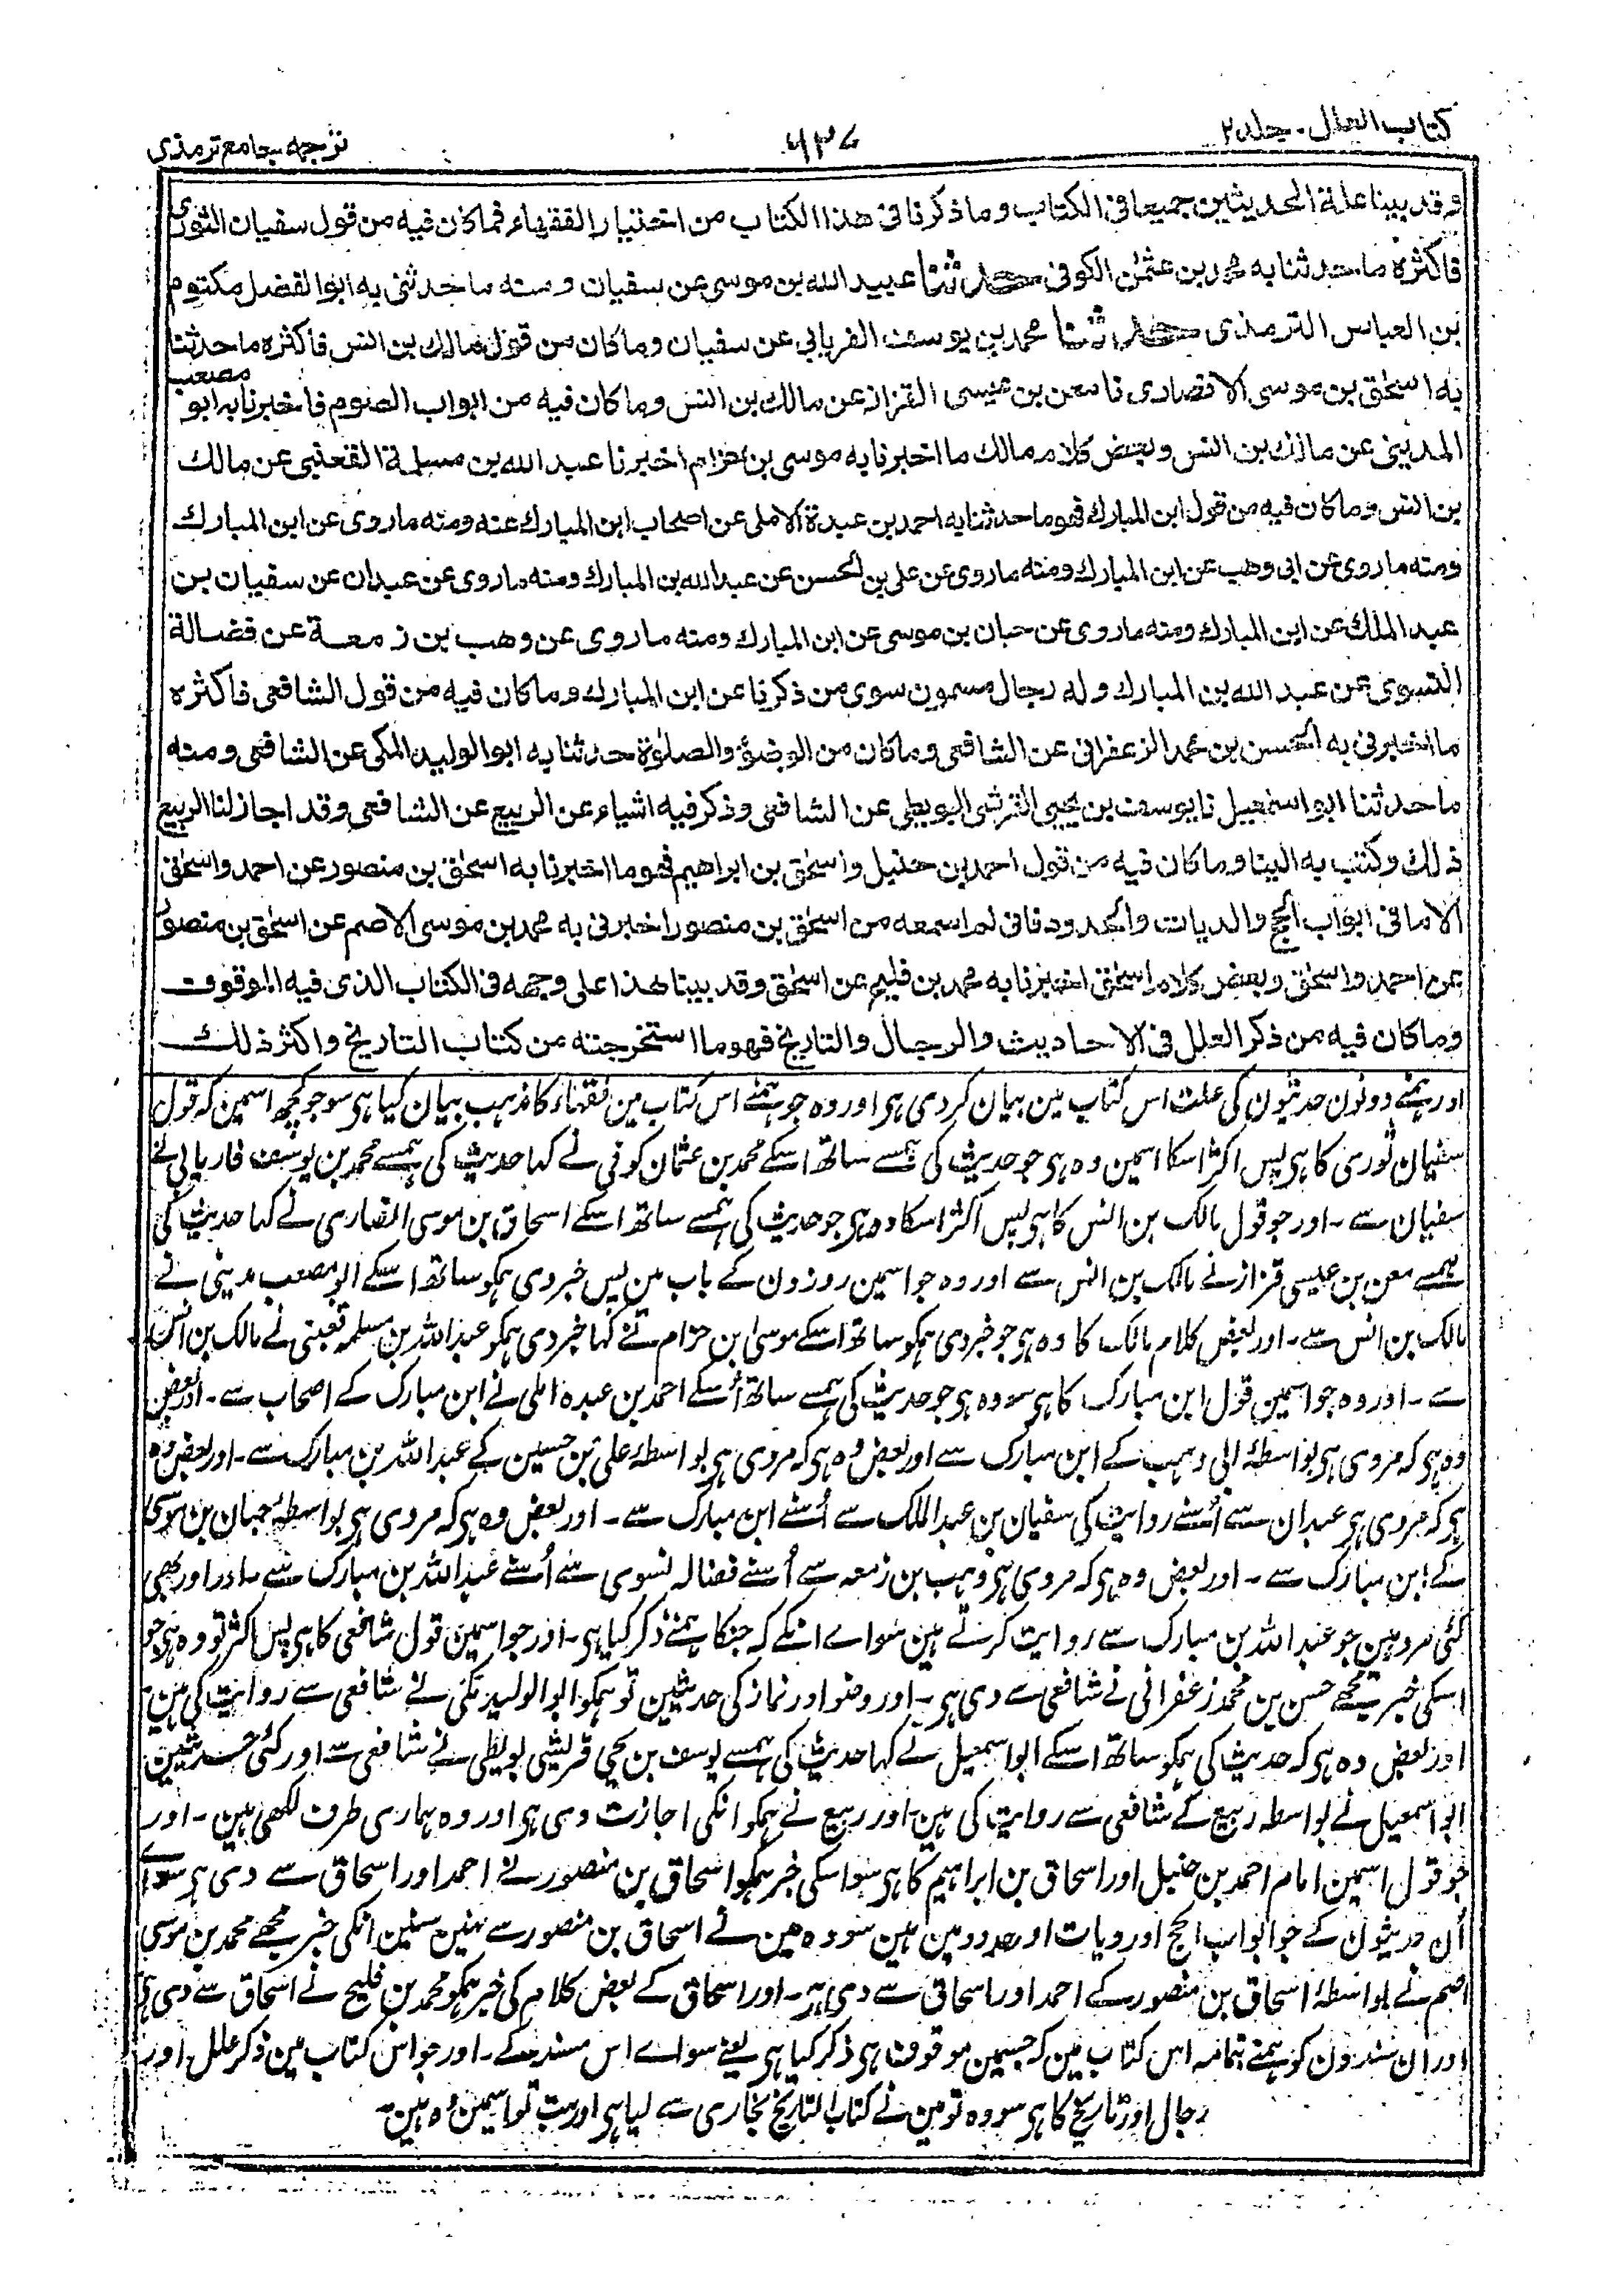 کتاب العلل - جلد ۲
۶۳۷
ترجمه جامع ترمذی
وقد بینا علة الحدیثین جمیعا فی الکتاب وما ذکرنا فی هذا الکتاب من اختیار الفقهاء فما کان فیه من قول سفیان الثوری
فاکثره ما حدثنا به محمد بن عثمٰن الکوفی حدثنا عبید الله بن موسی عن سفیان ومنه ما حدثنی به ابو الفضل مکتوم
بن العباس الترمذی حدثنا محمد بن یوسف الفریابی عن سفیان وما کان من قول مالك بن انس فاکثره ما حدثنا
به اسحٰق بن موسی الانصاری نا معن بن عیسی القزاز عن مالك بن انس وما کان فیه من ابواب الصوم فاخبرنا به ابو مصعب
المدینی عن مالك بن انس وبعض کلام مالك ما اخبرنا به موسی بن حزام اخبرنا عبد الله بن مسلمة القعنبی عن مالك
بن انس وما کان فیه من قول ابن المبارك فهو ما حدثنا به احمد بن عبدة الاملی عن اصحاب ابن المبارك عنه ومنه ما روی عن ابن المبارك
ومنه ما روی عن ابی وهب عن ابن المبارك ومنه ما روی عن علی بن الحسن عن عبد الله بن المبارك ومنه ما روی عن عبدان عن سفیان بن
عبد الملك عن ابن المبارك ومنه ما روی عن حبان بن موسی عن ابن المبارك ومنه ما روی عن وهب بن زمعة عن فضالة
النسوی عن عبد الله بن المبارك وله رجال مسمون سوی من ذکرنا عن ابن المبارك وما کان فیه من قول الشافعی فاکثره
ما اخبرنی به الحسن بن محمد الزعفرانی عن الشافعی وما کان من الوضوٴ والصلوٰة حدثنا به ابو الولید المکی عن الشافعی ومنه
ما حدثنا ابو اسمٰعیل نا یوسف بن یحیی القرشی البویطی عن الشافعی وذکر فیه اشیاء عن الربیع عن الشافعی وقد اجاز لنا الربیع
ذلك وکتب به الینا وما کان فیه من قول احمد بن حنبل واسحٰق بن ابراهیم فهو ما اخبرنا به اسحٰق بن منصور عن احمد واسحٰق
الا ما فی ابواب الحج والدیات والحدود فانی لم اسمعه من اسحٰق بن منصور اخبرنی به محمد بن موسی الاصم عن اسحٰق بن منصور
عن احمد واسحٰق وبعض کلام اسحٰق اخبرنا به محمد بن فلیح عن اسحٰق وقد بینا هذا علی وجهه فی الکتاب الذی فیه الموقوف
وما کان فیه من ذکر العلل فی الاحادیث والرجال والتاریخ فهو ما استخرجته من کتاب التاریخ واکثر ذلك
اور ہمنے دونون حدیثون کی علت اس کتاب مین بیان کر دی ہی اور وہ جو ہمنے اس کتاب مین فقہاء کا مذہب بیان کیا ہی سو جو کچھ اسمین کہ قول
سفیان ثوری کا ہی پس اکثر اسکا اسمین وہ ہی جو حدیث کی ہمسے ساتھ اسکے محمد بن عثمان کوفی نے کہا حدیث کی ہمسے محمد بن یوسف فاریابی نے
سفیان سے - اور جو قول مالک بن انس کا ہی پس اکثر اسکا وہ ہی جو حدیث کی ہمسے ساتھ اسکے اسحاق بن موسی انصاری نے کہا حدیث کی
ہمسے معن بن عیسی قزاز نے مالک بن انس سے اور وہ جو اسمین روزون کے باب مین پس خبر دی ہمکو ساتھ اسکے ابو مصعب مدینی نے
مالک بن انس سے - اور بعض کلام مالک کا وہ ہی جو خبر دی ہمکو ساتھ اسکے موسیٰ ابن حزام نے کہا خبر دی ہمکو عبد اللہ بن مسلمہ قعنبی نے مالک بن انس
سے - اور وہ جو اسمین قول ابن مبارک کا ہی سو وہ ہی جو حدیث کی ہمسے ساتھ اُسکے احمد بن عبدہ املی نے ابن مبارک کے اصحاب سے - اور بعض
وہ ہی کہ مروی ہی بواسطۂ ابی وہب کے ابن مبارک سے اور بعض وہ ہی کہ مروی ہی بواسطۂ علی بن حسین کے عبد اللہ بن مبارک سے - اور بعض وہ
ہی کہ مروی ہی عبدان سے اُسنے روایت کی سفیان بن عبد الملک سے اُسنے ابن مبارک سے - اور بعض وہ ہی کہ مروی ہی بواسطۂ حبان بن موسی
کے ابن مبارک سے - اور بعض وہ ہی کہ مروی ہی وہب بن زمعہ سے اُسنے فضالہ نسوی سے اُسنے عبد اللہ بن مبارک سے - اور اور بھی
کئی مرد ہین جو عبد اللہ بن مبارک سے روایت کرتے ہین سواے انکے کہ جنکا ہمنے ذکر کیا ہی - اور جو اسمین قول شافعی کا ہی پس اکثر تو وہ ہی جو
اسکی خبر مجھے حسن بن محمد زعفرانی نے شافعی سے دی ہی - اور وضو اور نماز کی حدیثین تو ہمکو ابو الولید مکی نے شافعی سے روایت کی ہین
اور بعض وہ ہی کہ حدیث کی ہمکو ساتھ اسکے ابو اسمعیل نے کہا حدیث کی ہمسے یوسف بن یحیی قریشی بویطی نے شافعی سے اور کئی حدیثین
ابو اسمعیل نے بواسطہ ربیع کے شافعی سے روایت کی ہین اور ربیع نے ہمکو انکی اجازت دی ہی اور وہ ہماری طرف لکھی ہین - اور
جو قول اسمین امام احمد بن حنبل اور اسحاق بن ابراہیم کا ہی سو اسکی خبر ہمکو اسحاق بن منصور نے احمد اور اسحاق سے دی ہی سواے
اُن حدیثون کے جو ابواب الحج اور دیات اور حدود مین ہین سو وہ مین نے اسحاق بن منصور سے نہین سنین انکی خبر مجھے محمد بن موسی
اصم نے بواسطۂ اسحاق بن منصور کے احمد اور اسحاق سے دی ہی - اور اسحاق کے بعض کلام کی خبر ہمکو محمد بن فلیح نے اسحاق سے دی ہی
اور ان سندون کو ہمنے بتمامہ اس کتاب مین کہ جسمین موقوف ہی ذکر کیا ہی یعنے سواے اس مسند کے - اور جو اس کتاب مین ذکر علل اور
رجال اور تاریخ کا ہی سو وہ تو مین نے کتاب التاریخ بخاری سے لیا ہی اور بہت تو اسمین وہ ہین